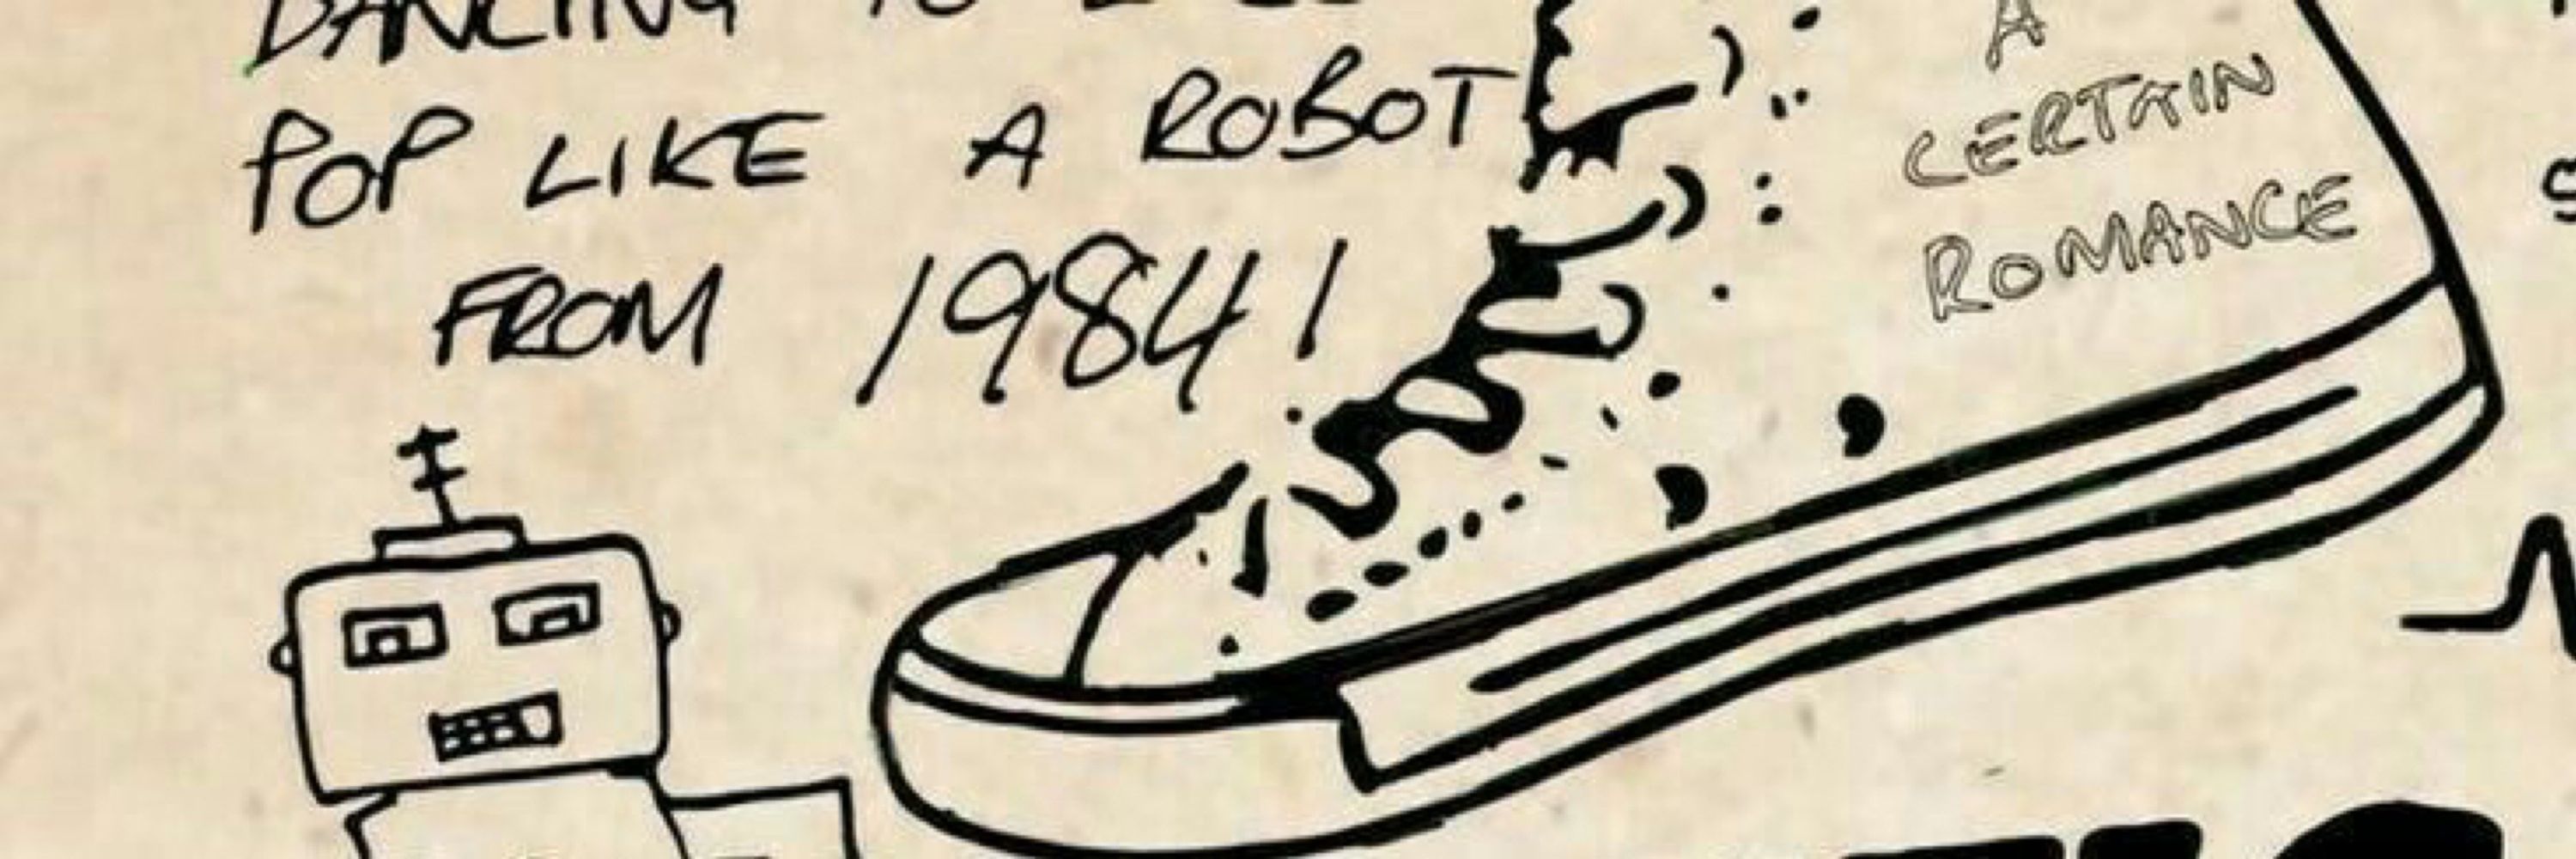 DANCING TO
POP LIKE A ROBOT
FROM 1984!
A
CERTAIN
ROMANCE